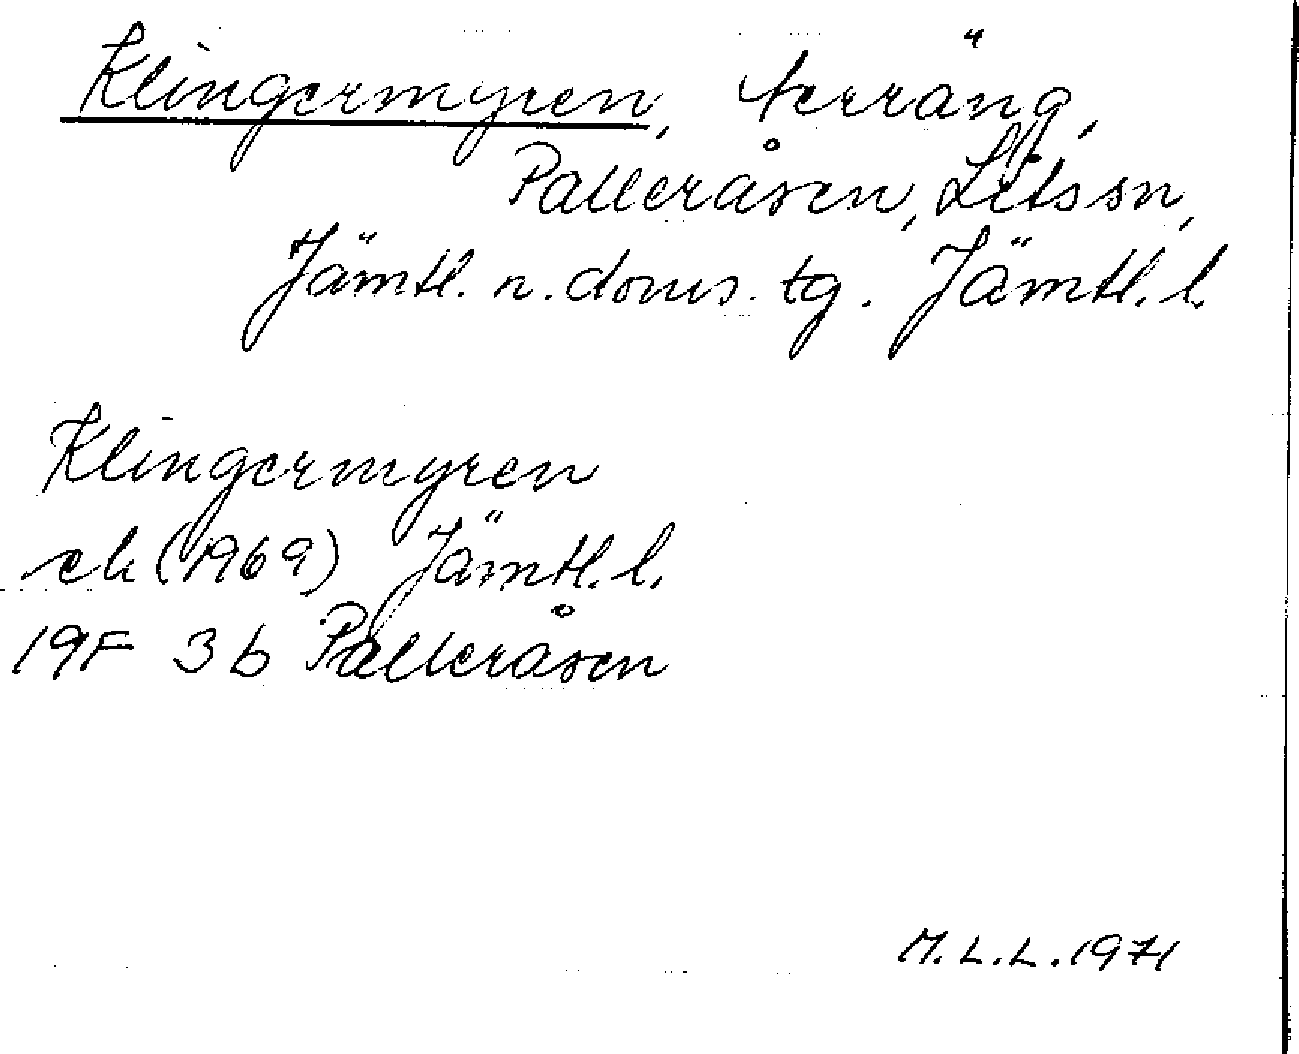 Klingermyren, terräng,
Palleråsen, Lits sn,
Jämtl. n. doms. tg. Jämtl. l.
Klingermyren
ek (1969) Jämtl. l.
19F 3b Palleråsen
M.L.L. 1971